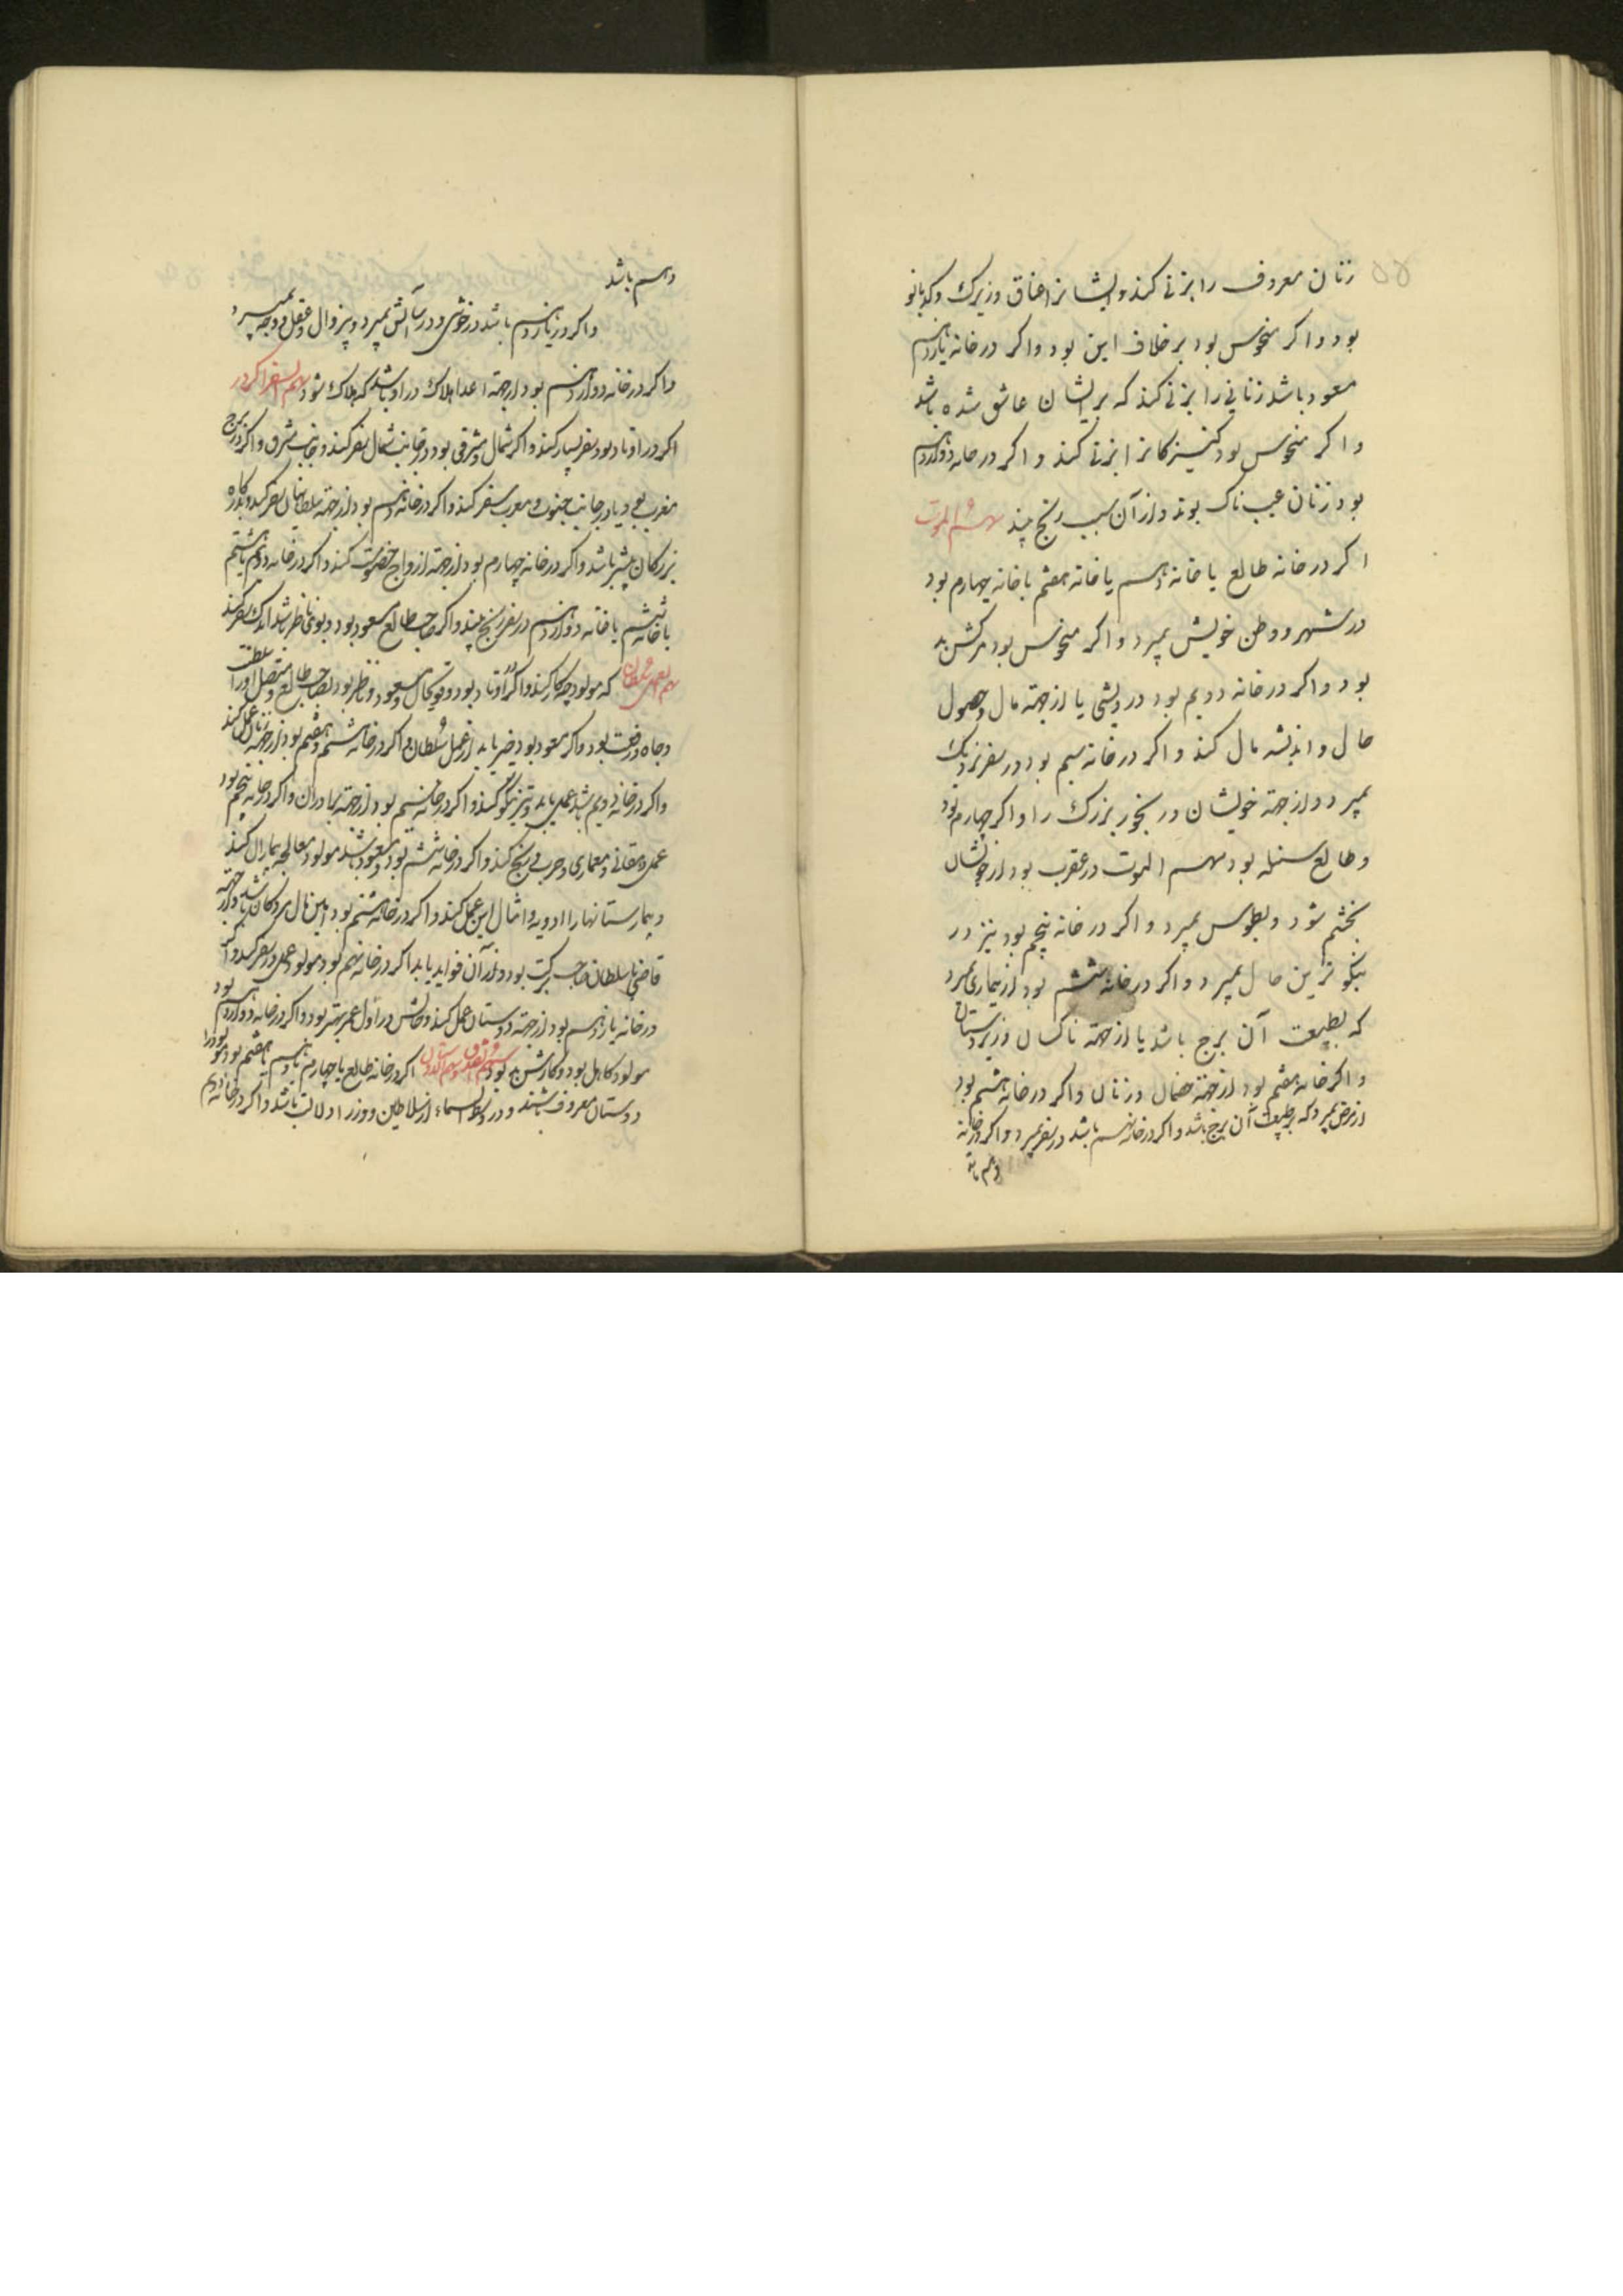 زنان معروف را بزنی کند و ایشانرا عناق و زیرک و کدبانو
بود و اکر منحوس بود بر خلاف این بود و اکر در خانه یازدهم
مسعود باشد زنانی را بزنی کند که بر ایشان عاشق شده باشد
و اکر منحوس بود کنیزکانرا بزنی کند و اکر در خانه دوازدهم
بود زنان عیب ناک بوند و از آن سبب رنج بیند سهم الموت
اکر در خانه طالع یا خانه دهم یا خانه هفتم یا خانه چهارم بود
در شهر و وطن خویش بمیرد و اکر منحوس بود مرکش بد
بود و اکر در خانه دویم بود در ویشی یا از جهة مال و حصول
حال و اندیشه مال کند و اکر در خانه سیم بود در سفر نزدیک
بمیرد و از جهة خویشان و رنجور بزرک را و اکر چهارم بود
و طالع سنبله بود سهم الموت در عقرب بود از خویشان
بخشم شود و بحبوس بمیرد و اکر در خانه پنجم بود نیز در
نیکو ترین حال بمیرد و اکر در خانه ششم بود از بیماری بمیرد
که بطبیعت آن برج باشد یا از جهة ناکسان و زیردستان
و اکر خانه هفتم بود از جهة خصمان و زنان و اکر در خانه هشتم بود
از مرضی بمیرد که بر طبیعت آن برج باشد و اکر در خانه نهم باشد در سفر بمیرد و اکر در خانه
دهم باشد
دهم باشد
و اکر در یازدهم باشد در خوشی و در آسایش بمیرد و نیز زوال و عقل و وجه بمیرد
و اکر در خانه دوازدهم بود از جهة اعدا هلاک در او باشد که هلاک شود سهم السفر اکر در
اکر در اوتاد بود سفر بسیار کند و اکر شمال و مشرقی بود در جانب شمال سفر کند و جانب مشرق و اکر در برج
مغرب بود یا در جانب جنوب و مغرب سفر کند و اکر در خانه دهم بود از جهة سلطانیان سفر کند و بدرکاه
بزرکان بیشتر باشد و اکر در خانه چهارم بود از جهة ازواج خصومت کند و اکر در خانه دویم یا هشتم
یا خانه ششم یا خانه دوازدهم در سفر رنج بیند و اکر صاحب طالع مسعود بود و بوی ناظر باشد اندک سفر کند
که مولود چه کار کند و اکر در اوتاد بود و قوی حال و مسعود و ناظر بود بصاحب طالع و متصل او را سلطنت
و جاه و رفعت بود و اکر مسعود بود خیر یابد از عمل سلطان و اکر در خانه ششم و هفتم بود از جهة زنان عمل کند
و اکر در خانه دویم باشد عملی یابد و نیز نیکو کند و اکر در خانه سیم بود از جهة برادران و اکر در خانه پنجم بود
عمل دهقانی و معماری و حرب و رنج کند و اکر در خانه ششم بود و مسعود باشد مولود معالجه بیماران کند
و بیمارستانها را ادویه و امثال این عمل کند و اکر در خانه هشتم بود امین مال مردکان باشد و از جهة
قاضی یا سلطان صاحب برکت بود و از آن فواید یابد اکر در خانه نهم بود مولود عمل در سفر کند و اکر
در خانه یازدهم بود از جهة دوستان عمل کند و حالش در اول عمر بهتر بود و اکر در خانه دوازدهم بود
مولود کاهل بود و کارش بد بود اکر در خانه طالع یا چهارم یا دهم یا هفتم بود مولود را
دوستان معروف باشند و در وسط السماء از سلاطین و وزرا دلالت باشد و اکر در خانه دویم